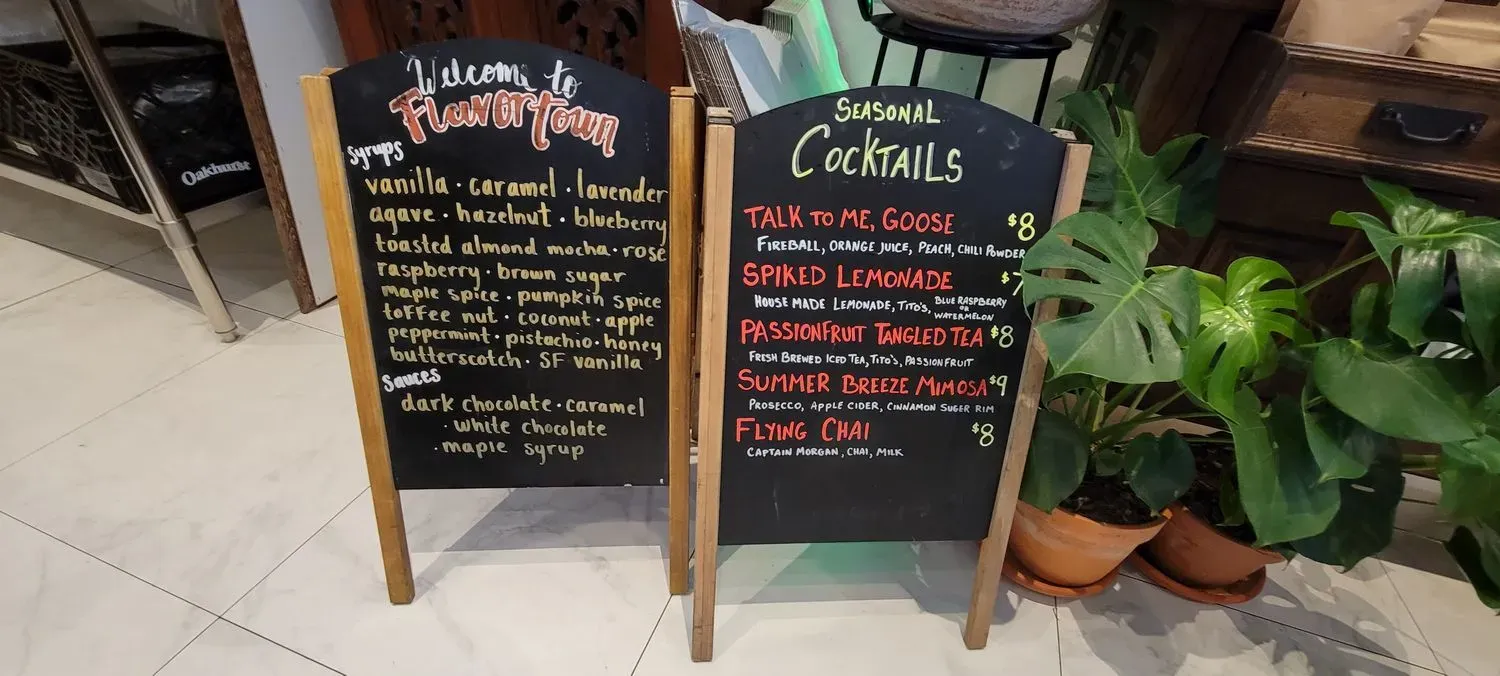 Oakhurst
Welcome to
Flavortown
Syrups
vanilla · caramel · lavender
agave · hazelnut · blueberry
toasted almond mocha · rose
raspberry · brown sugar
maple spice · pumpkin spice
toffee nut · coconut · apple
peppermint · pistachio · honey
butterscotch · SF vanilla
Sauces
dark chocolate · caramel
· white chocolate
· maple syrup
SEASONAL
COCKTAILS
TALK TO ME, GOOSE $8
FIREBALL, ORANGE JUICE, PEACH, CHILI POWDER
SPIKED LEMONADE $7
HOUSE MADE LEMONADE, TITO'S, BLUE RASPBERRY
OR
WATERMELON
PASSIONFRUIT TANGLED TEA $8
FRESH BREWED ICED TEA, TITO'S, PASSIONFRUIT
SUMMER BREEZE MIMOSA $9
PROSECCO, APPLE CIDER, CINNAMON SUGER RIM
FLYING CHAI $8
CAPTAIN MORGAN, CHAI, MILK